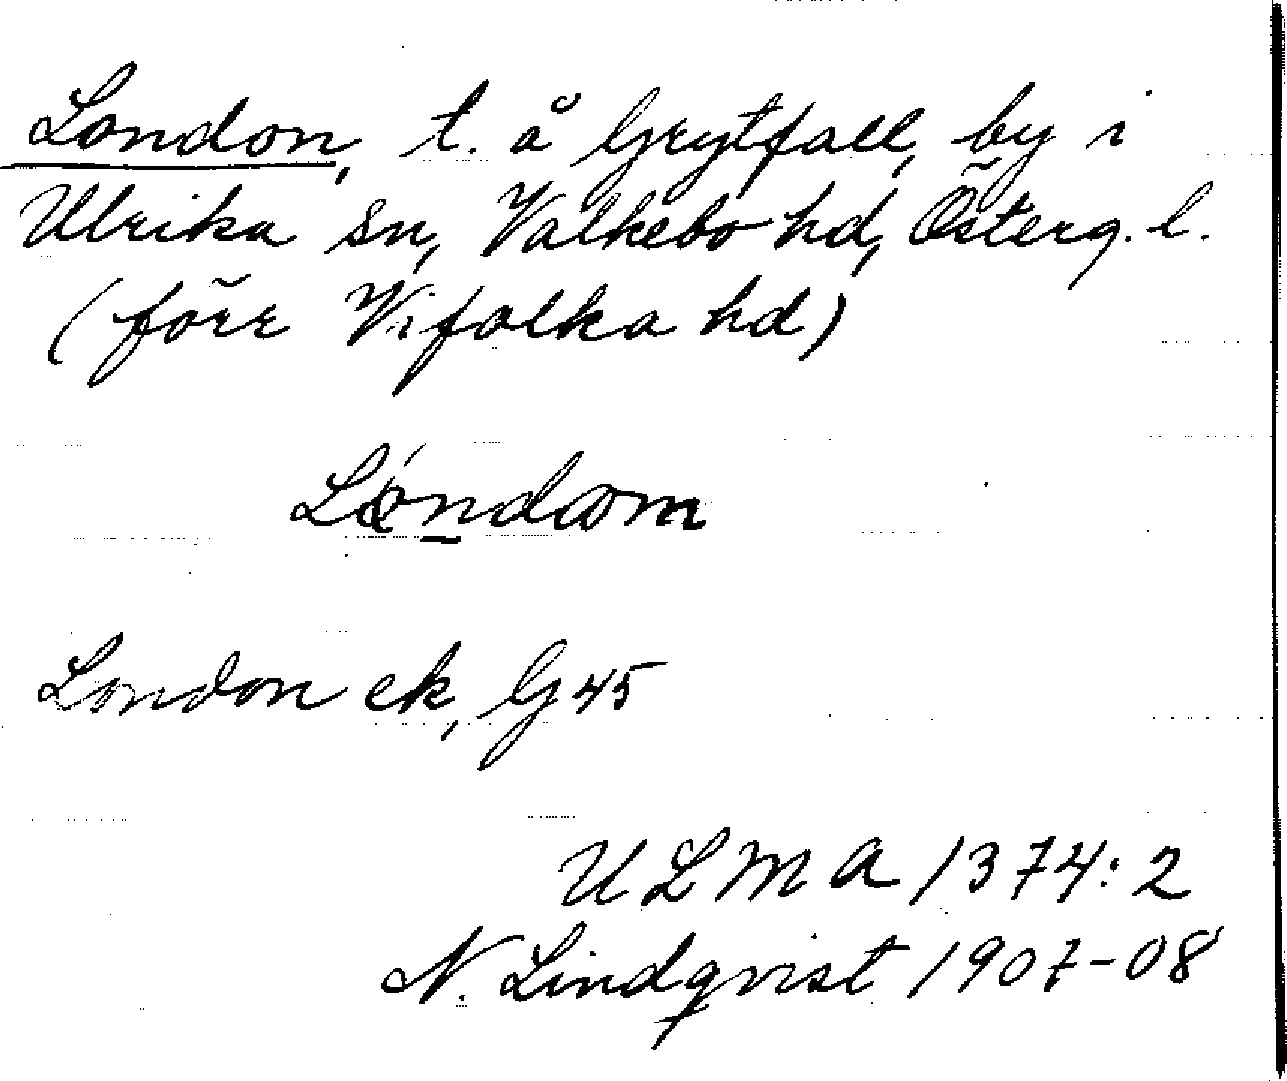 London, t. å Grytfall, by i
Ulrika sn, Valkebo hd, Österg. l.
(förr Vifolka hd)
London ek, G 45
ULMA 1374:2
N. Lindqvist 1907-08